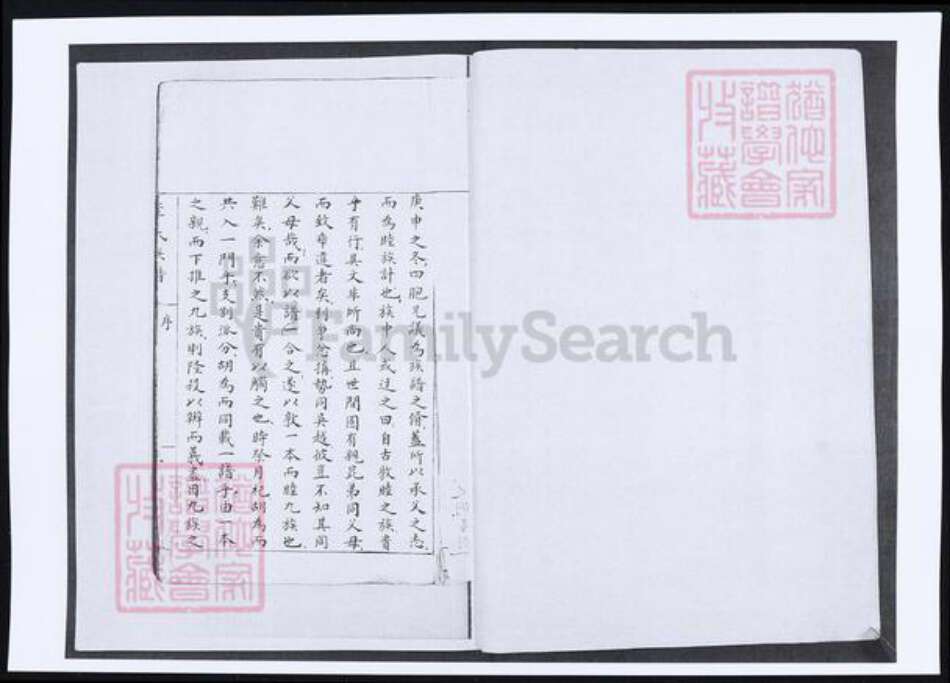 庚申之冬四胞兄議為族譜之修蓋所以承父之志
而為睦族計也族中人或迂之曰自古敦睦之族貴
乎有行具文非所尚也且世間固有親昆弟同父母
而致乖違者矣利爭忿搆勢同吳越彼豈不知其同
父母哉而欲以譜一合之遂以敦一本而睦九族也
難矣余意不然是貴有以觸之也時祭月祀胡為而
共入一門乎支別派分胡為而同載一譜乎由一本
之親而下推之九族則隆殺以辨而義盡由九族之
氏族譜
序
一
猶他家譜學會收藏
猶他家譜學會收藏
FamilySearch